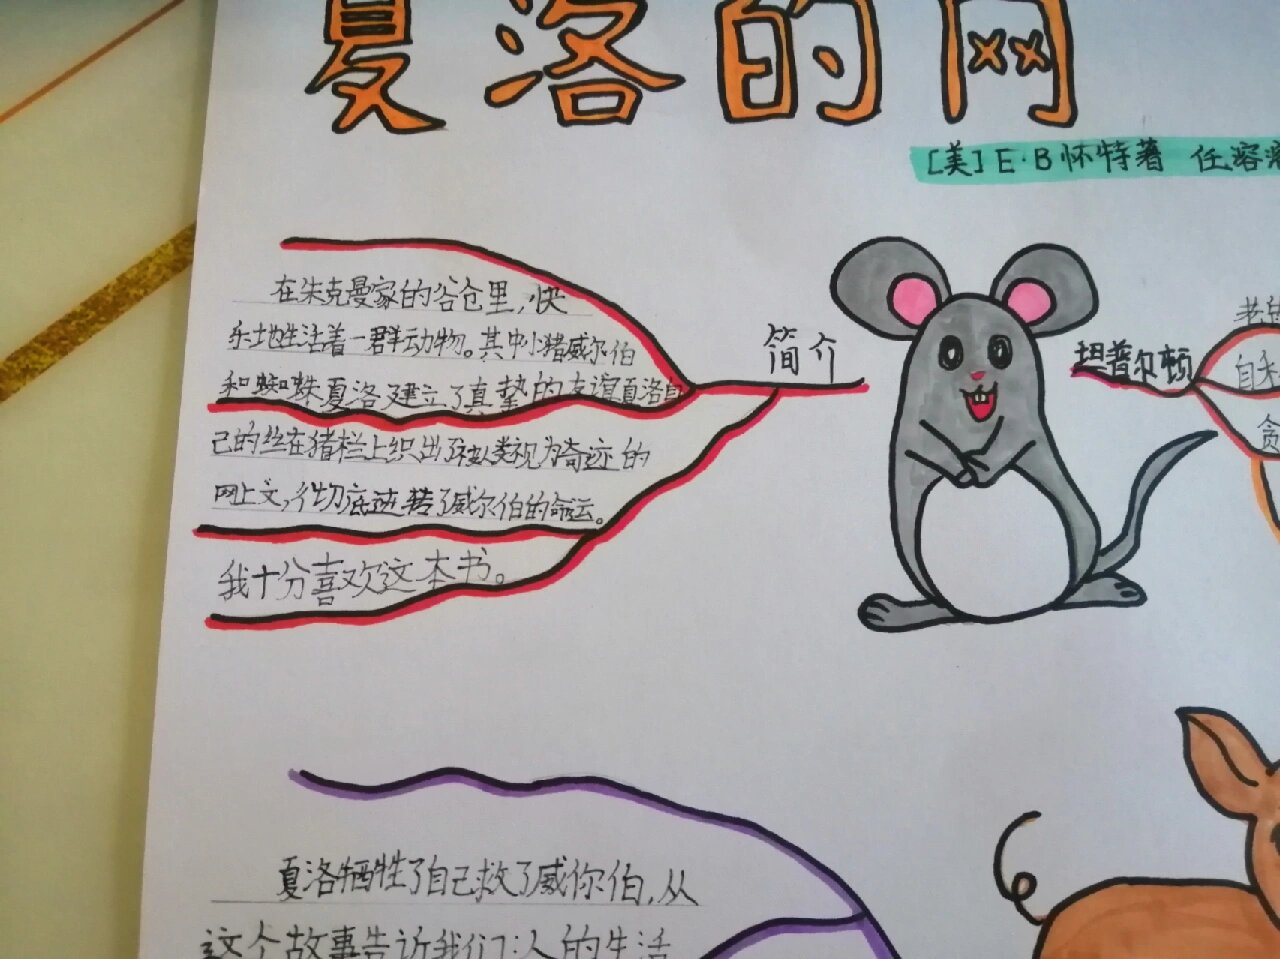 夏洛的网
[美]E·B怀特著 任溶
简介
在朱克曼家的谷仓里，快
乐地生活着一群动物。其中小猪威尔伯
和蜘蛛夏洛建立了真挚的友谊夏洛自
己的丝在猪栏上织出了被人类视为奇迹的
网上文，彻底逆转了威尔伯的命运。
我十分喜欢这本书。
坦普尔顿
老的
自私
贪
夏洛牺牲了自己救了威尔伯，从
这个故事告诉我们：人的生活